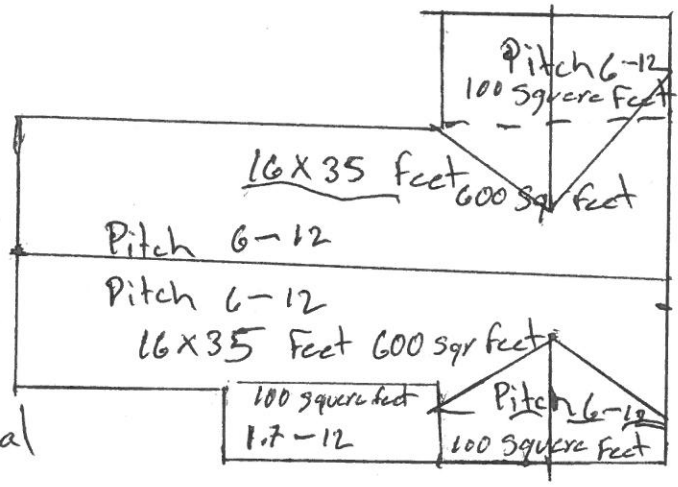 Pitch 6-12
100 Square Feet
16 X 35 Feet 600 Sqr Feet
Pitch 6-12
Pitch 6-12
16 X 35 Feet 600 sqr feet
100 square feet
1.7-12
Pitch 6-12
100 Square Feet
al